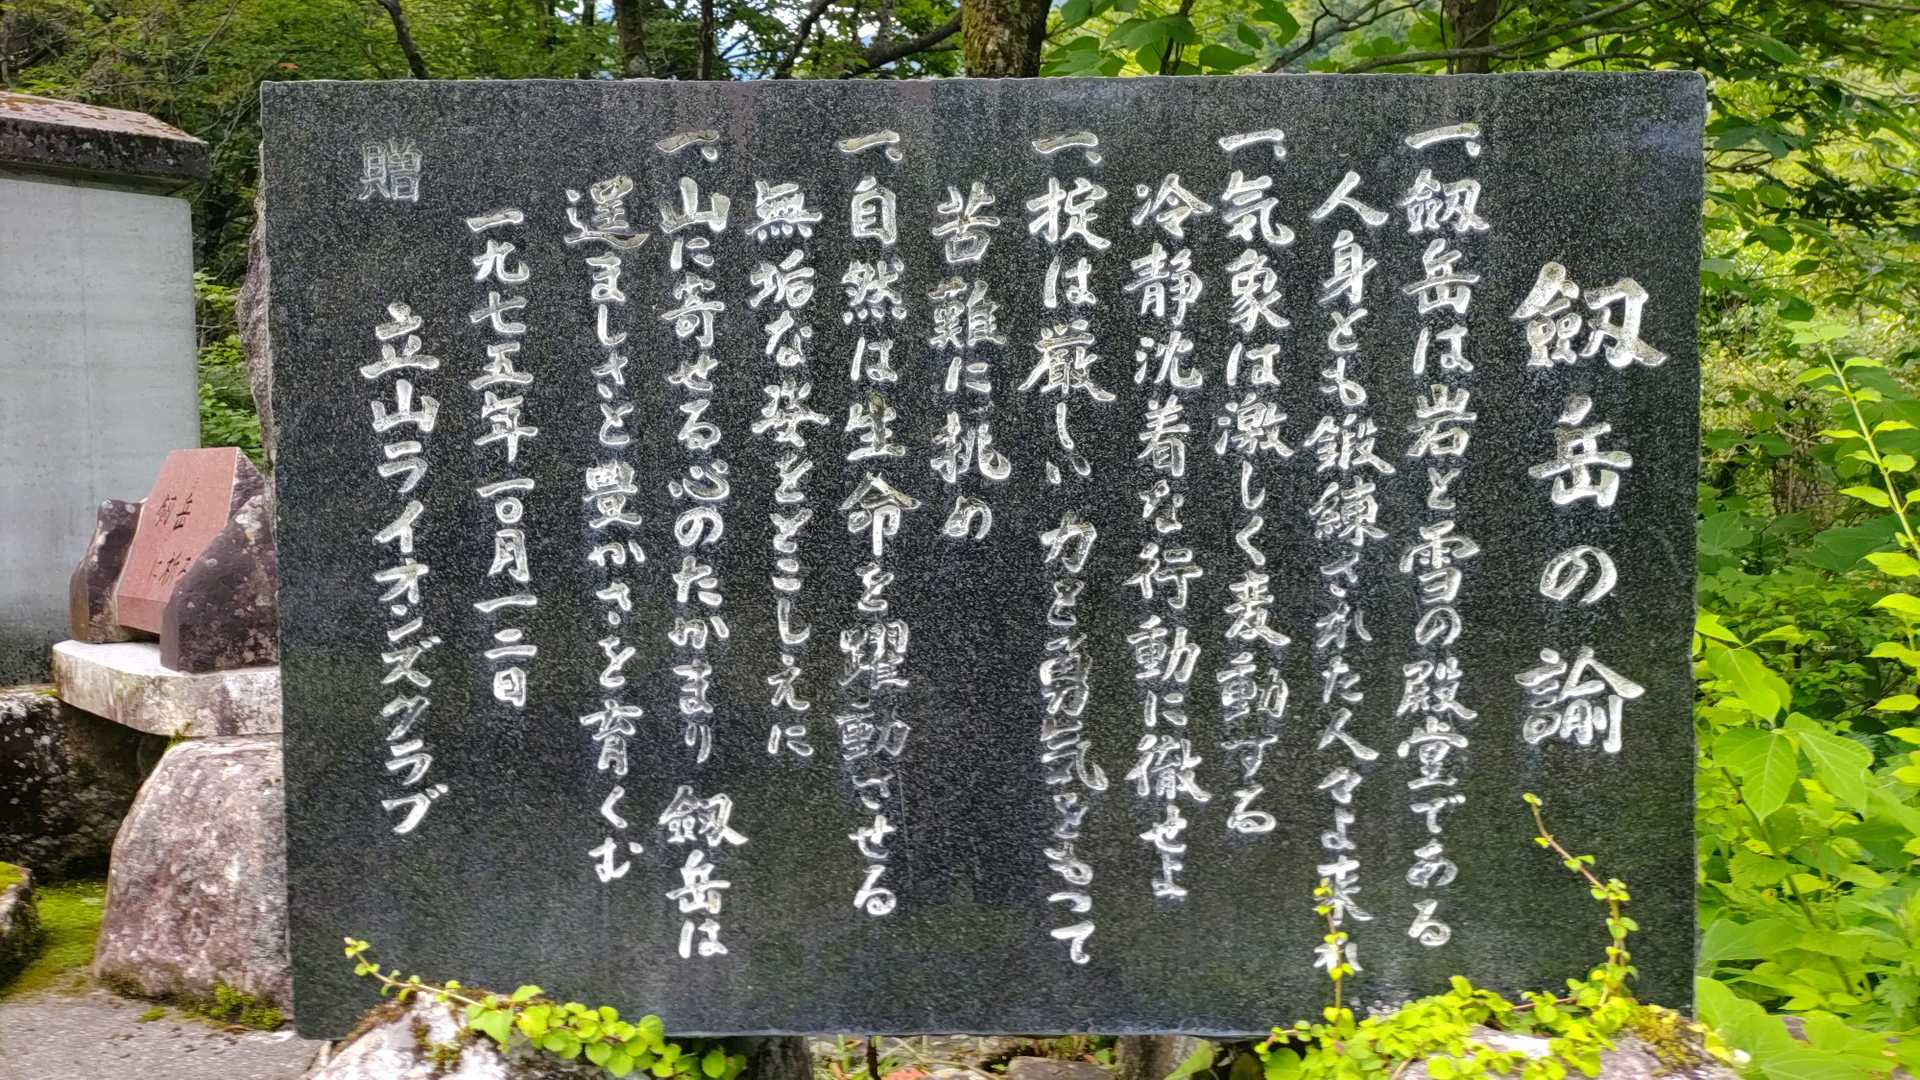 劔岳の諭
一、劔岳は岩と雪の殿堂である
人身とも鍛練された人々よ来れ
一、気象は激しく変動する
冷静沈着な行動に徹せよ
一、掟は厳しい 力と勇気ともって
苦難に挑め
一、自然は生命を躍動させる
無垢な姿をとこしえに
一、山に寄せる心のたかまり 劔岳は
逞ましさと豊かさを育くむ
一九七五年一〇月一二日
贈 立山ライオンズクラブ
劔岳
に祈る